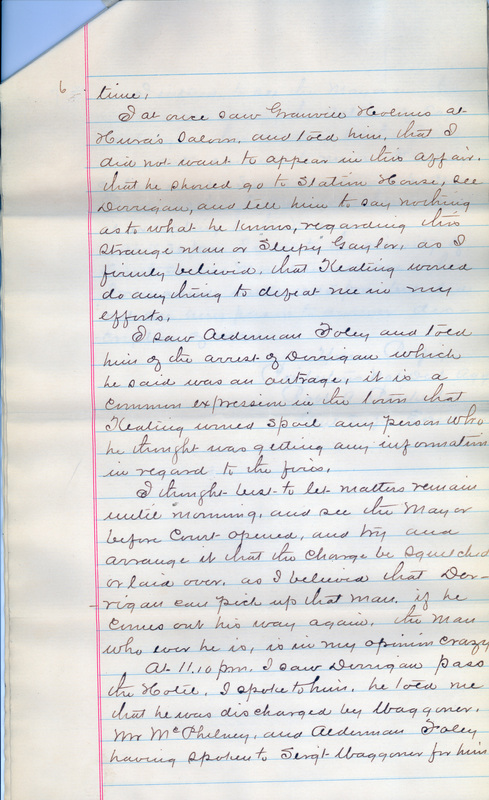 6
time,
I at once saw Granville Holmes at
Hura's Saloon, and told him, that I
did not want to appear in this affair,
that he should go to Station House, see
Dorrigan, and tell him to say nothing
as to what he knows, regarding this
strange man or Sleepy Gaylor, as I
firmly believed, that Keating would
do anything to defeat me in my
efforts.
I saw Alderman Foley and told
him of the arrest of Dorrigan which
he said was an outrage, it is a
common expression in the town that
Keating would spoil any person who
he thought was getting any information
in regard to the fires.
I thought best to let matters remain
until morning, and see the Mayor
before Court opened, and try and
arrange it that the charge be squelched
or laid over, as I believed that Dor-
-rigan can pick up that man, if he
comes out his way again, the man
who ever he is, is in my opinion crazy
At 11.10 pm. I saw Dorrigan pass
the Hotel, I spoke to him, he told me
that he was discharged by Waggoner,
Mr McPhilney, and Alderman Foley
having spoken to Sergt Waggoner for him